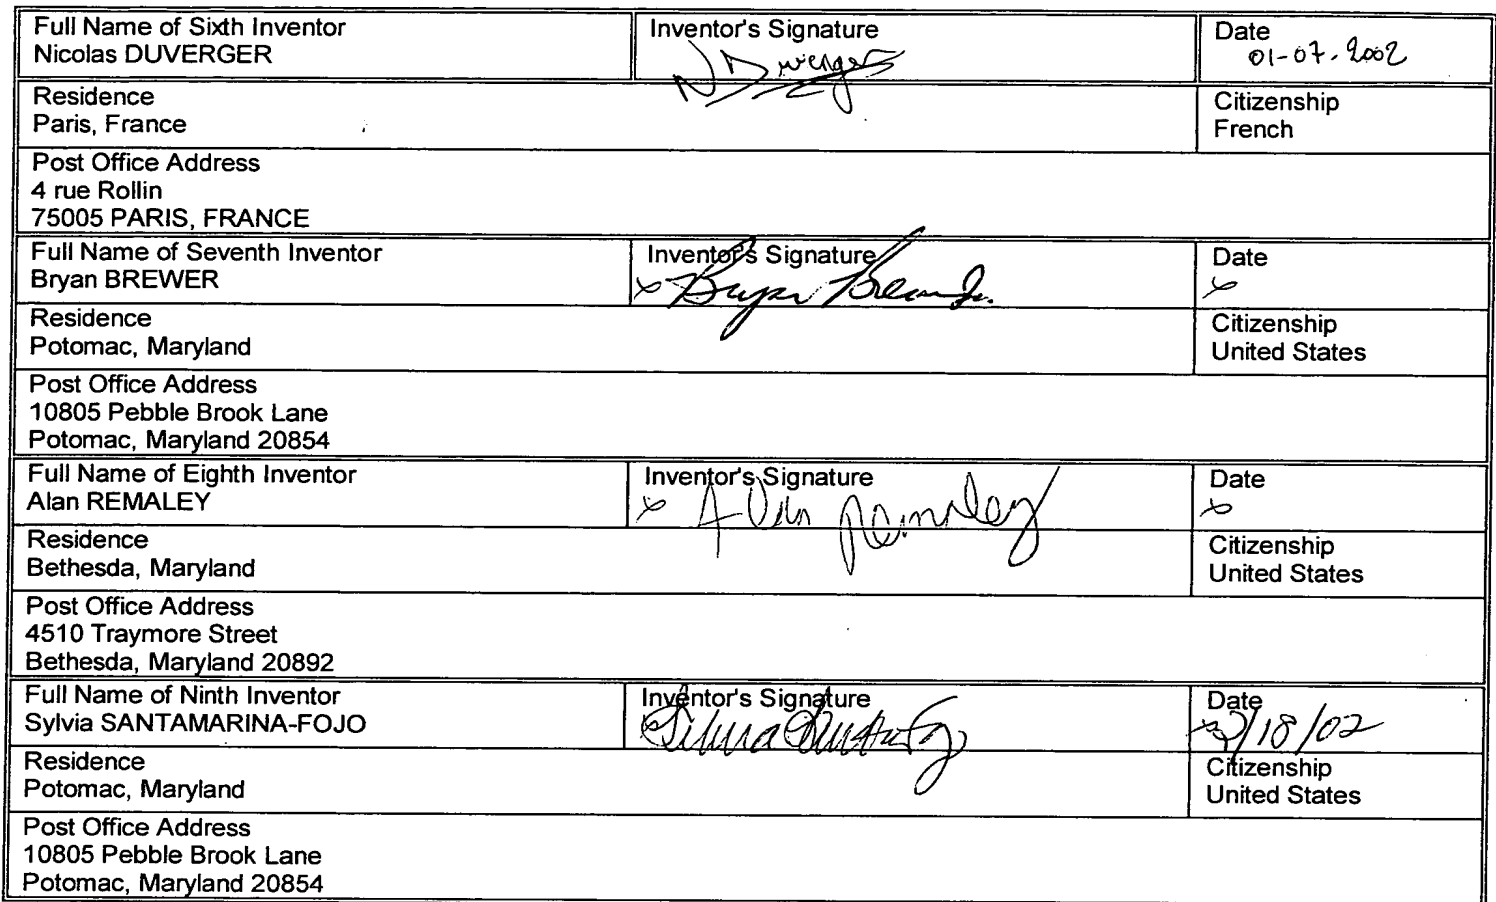 Full Name of Sixth Inventor
Nicolas DUVERGER
Inventor's Signature
NDuverger
Date
01-07-2002
Residence
Paris, France
Citizenship
French
Post Office Address
4 rue Rollin
75005 PARIS, FRANCE
Full Name of Seventh Inventor
Bryan BREWER
Inventor's Signature
x Bryan Brewer Jr.
Date
x
Residence
Potomac, Maryland
Citizenship
United States
Post Office Address
10805 Pebble Brook Lane
Potomac, Maryland 20854
Full Name of Eighth Inventor
Alan REMALEY
Inventor's Signature
x Alan Remaley
Date
x
Residence
Bethesda, Maryland
Citizenship
United States
Post Office Address
4510 Traymore Street
Bethesda, Maryland 20892
Full Name of Ninth Inventor
Sylvia SANTAMARINA-FOJO
Inventor's Signature
Date
x 2/18/02
Residence
Potomac, Maryland
Citizenship
United States
Post Office Address
10805 Pebble Brook Lane
Potomac, Maryland 20854